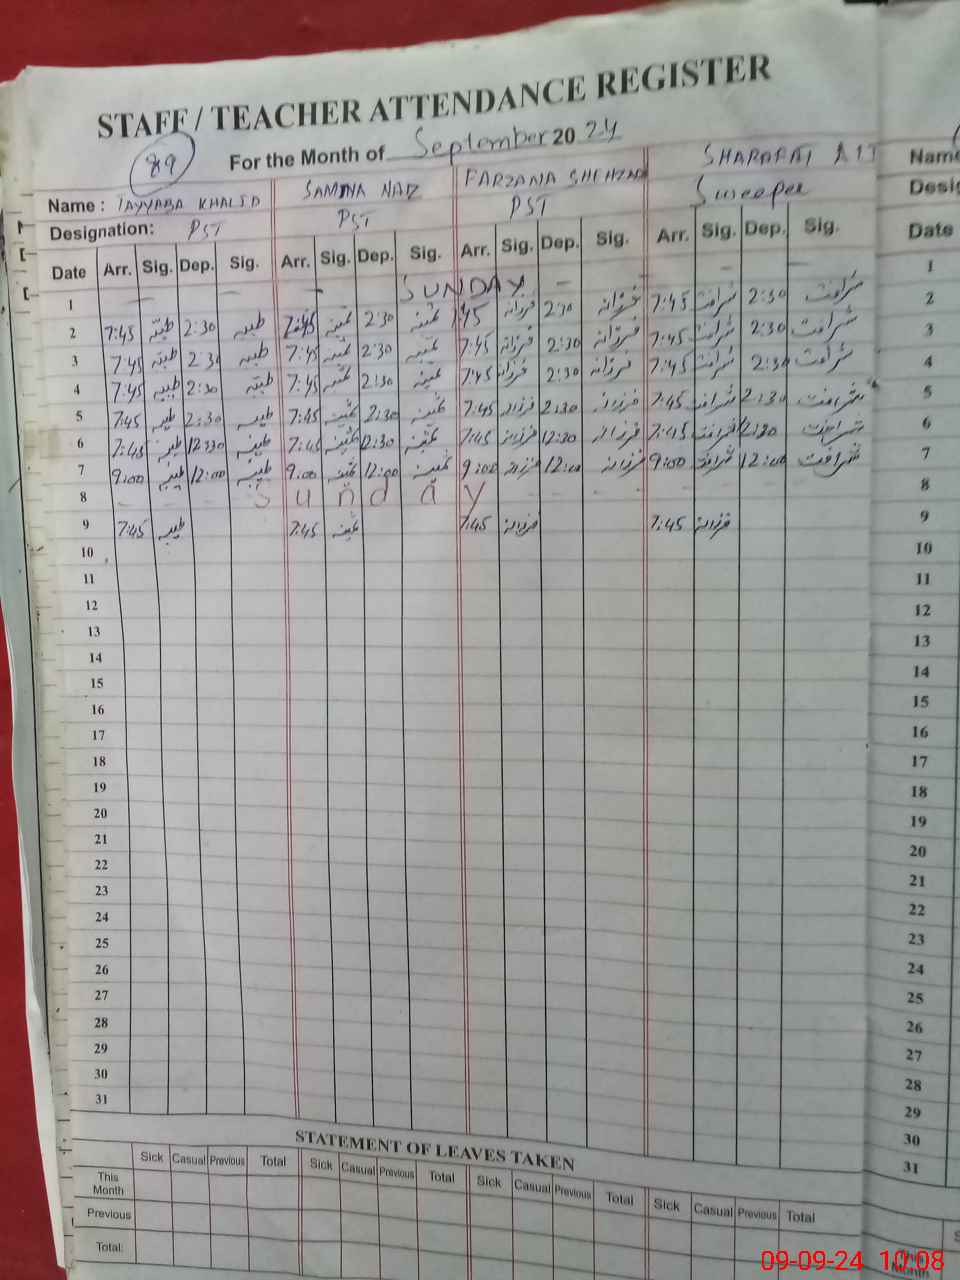 STAFF / TEACHER ATTENDANCE REGISTER
89
For the Month of September 2024
Name : TAYYABA KHALID SAMINA NAZ FARZANA SHEHZAD SHARAFAT Name
Designation: PST PST PST Sweeper
Date Arr. Sig. Dep. Sig. Arr. Sig. Dep. Sig. Arr. Sig. Dep. Sig. Arr. Sig. Dep. Sig. Date
1 SUNDAY 1
2 7:45 طیبہ 2:30 طیبہ 7:45 ثمینہ 2:30 ثمینہ 7:45 فرزانہ 2:30 فرزانہ 7:45 شرافت 2:30 شرافت 2
3 7:45 طیبہ 2:30 طیبہ 7:45 ثمینہ 2:30 ثمینہ 7:45 فرزانہ 2:30 فرزانہ 7:45 شرافت 2:30 شرافت 3
4 7:45 طیبہ 2:30 طیبہ 7:45 ثمینہ 2:30 ثمینہ 7:45 فرزانہ 2:30 فرزانہ 7:45 شرافت 2:30 شرافت 4
5 7:45 طیبہ 2:30 طیبہ 7:45 ثمینہ 2:30 ثمینہ 7:45 فرزانہ 2:30 فرزانہ 7:45 شرافت 2:30 شرافت 5
6 7:45 طیبہ 12:30 طیبہ 7:45 ثمینہ 12:30 ثمینہ 7:45 فرزانہ 12:30 فرزانہ 7:45 شرافت 12:30 شرافت 6
7 9:00 طیبہ 12:00 طیبہ 9:00 ثمینہ 12:00 ثمینہ 9:00 فرزانہ 12:00 فرزانہ 9:00 شرافت 12:00 شرافت 7
8 Sunday 8
9 7:45 طیبہ 7:45 ثمینہ 7:45 فرزانہ 7:45 فرزانہ 9
10 10
11 11
12 12
13 13
14 14
15 15
16 16
17 17
18 18
19 19
20 20
21 21
22 22
23 23
24 24
25 25
26 26
27 27
28 28
29 29
30 30
31 31
STATEMENT OF LEAVES TAKEN
Sick Casual Previous Total Sick Casual Previous Total Sick Casual Previous Total Sick Casual Previous Total
This Month
Previous
Total:
09-09-24 10:08